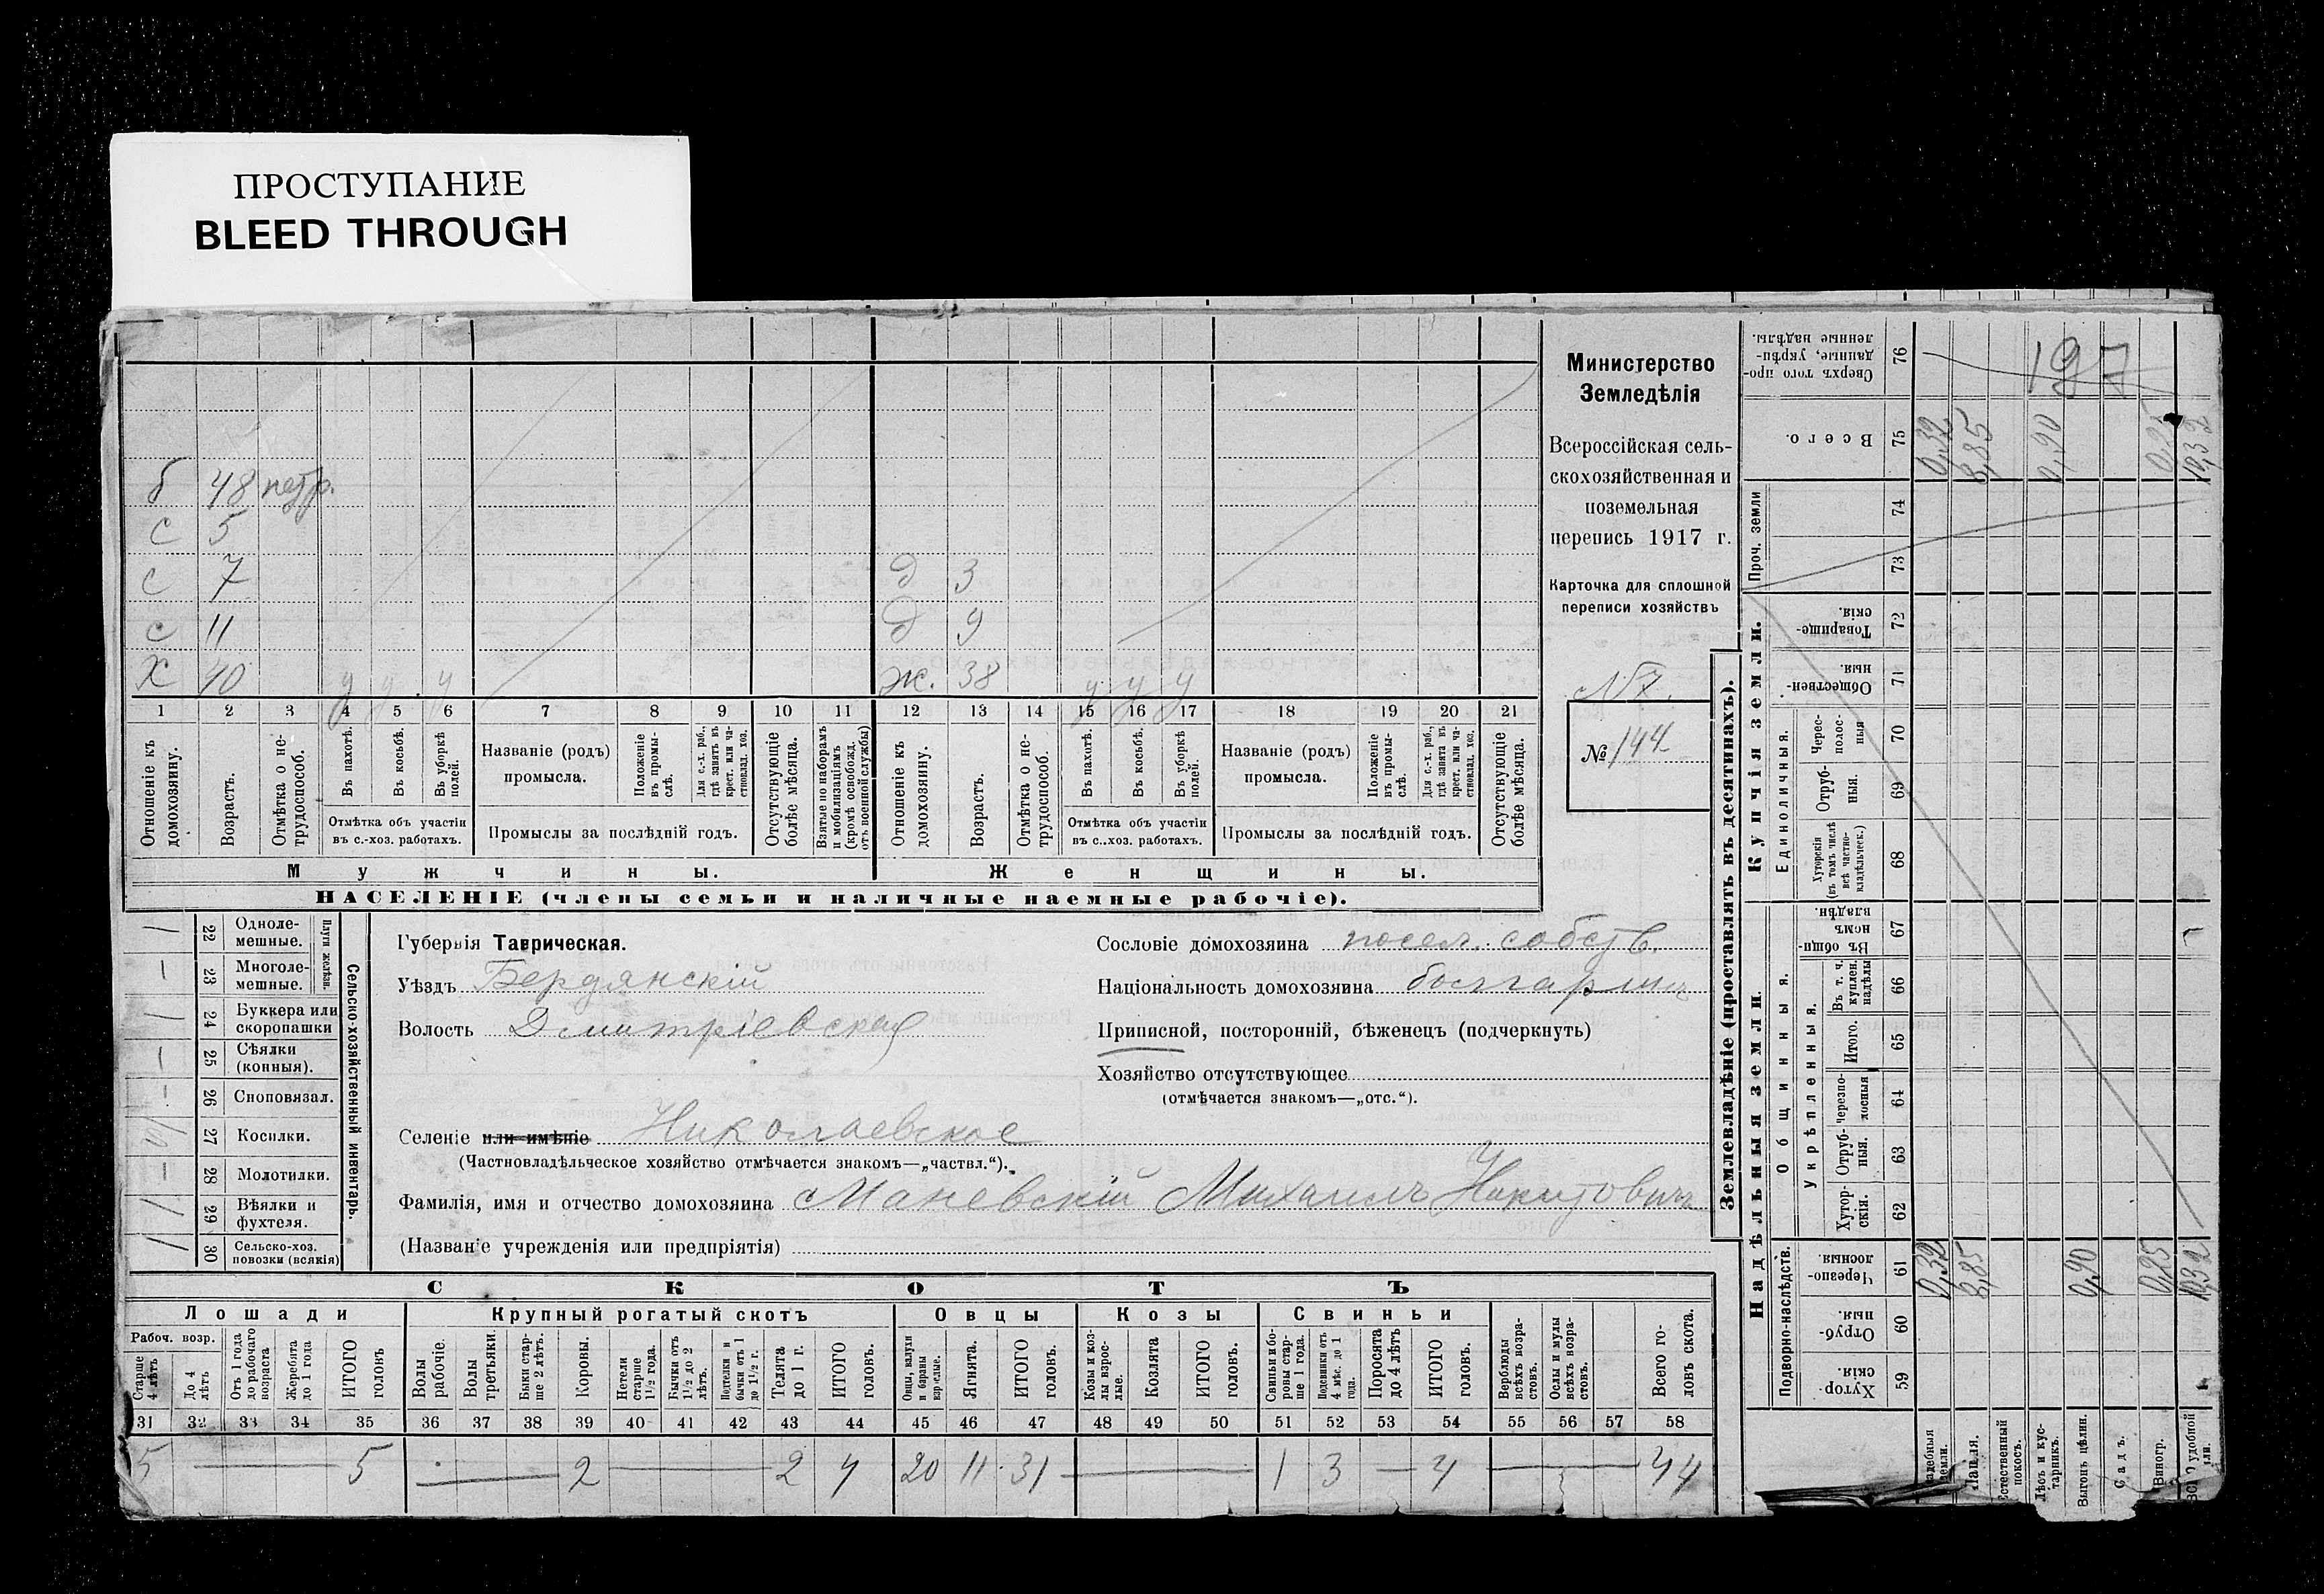 ПРОСТУПАНИЕ
BLEED THROUGH
б 48 нетр.
с 5
с 7 д 3
с 11 д 9
х 40 у у у ж. 38 у у у
1 2 3 4 5 6 7 8 9 10 11 12 13 14 15 16 17 18 19 20 21
Отношеніе къ домохозяину.
Возрастъ.
Отмѣтка о не-трудоспособ.
Въ пахотѣ.
Въ косьбѣ.
Въ уборкѣ полей.
Отмѣтка объ участіи
въ с.-хоз. работахъ.
Названіе (родъ)
промысла.
Положеніе въ промы-слѣ.
Для с.-х. раб., гдѣ занятъ въ крест. или ча-стновлад. хоз.
Промыслы за послѣдній годъ.
Отсутствующіе болѣе мѣсяца.
Взятые по наборамъ и мобилизаціямъ (кромѣ освобожд. отъ военной службы)
Отношеніе къ домохозяину.
Возрастъ.
Отмѣтка о не-трудоспособ.
Въ пахотѣ.
Въ косьбѣ.
Въ уборкѣ полей.
Отмѣтка объ участіи
въ с..хоз. работахъ.
Названіе (родъ)
промысла.
Положеніе въ промы-слѣ.
Для с.-х. раб., гдѣ занята въ крест. или ча-стновлад. хоз.
Промыслы за послѣдній годъ.
Отсутствующіе болѣе мѣсяца.
Мужчины.
Женщины.
НАСЕЛЕНІЕ (члены семьи и наличные наемные рабочіе).
Министерство
Земледѣлія
Всероссійская сель-
скохозяйственная и
поземельная
перепись 1917 г.
Карточка для сплошной
переписи хозяйствъ
№ 144
/ 22 Одноле-мешные.
— 23 Многоле-мешные.
Плуги желѣзн.
/ 24 Буккера или скоропашки
— 25 Сѣялки (конныя).
— 26 Сноповязал.
27 Косилки.
— 28 Молотилки.
/ 29 Вѣялки и фухтеля.
/ 30 Сельско-хоз. повозки (всякія)
Сельско-хозяйственный инвентарь.
Губернія Таврическая.
Уѣздъ Бердянскій
Волость Дмитріевская
Сословіе домохозяина посел. собств.
Національность домохозяина болгаринъ
Приписной, посторонній, бѣженецъ (подчеркнуть)
Хозяйство отсутствующее
(отмѣчается знакомъ—„отс.“).
Селеніе или имѣніе Николаевское
(Частновладѣльческое хозяйство отмѣчается знакомъ—„частвл.“).
Фамилія, имя и отчество домохозяина Маневскій Михаилъ Никитовичъ
(Названіе учрежденія или предпріятія)
СКОТЪ
Лошади
Крупный рогатый скотъ
Овцы
Козы
Свиньи
Рабоч. возр.
Старше 4 лѣтъ
До 4 лѣтъ
Отъ 1 года до рабочаго возраста
Жеребята до 1 года
ИТОГО головъ
Волы рабочіе.
Волы третьяки.
Быки стар-ше 2 лѣтъ.
Коровы.
Нетели старше 1½ года.
Бычки отъ 1½ до 2 лѣтъ.
Подтелки и бычки отъ 1 до 1½ г.
Телята до 1 г.
ИТОГО головъ.
Овцы, валухи и бараны взрослые.
Ягнята.
ИТОГО головъ.
Козы и коз-лы взрос-лые.
Козлята
ИТОГО головъ.
Свиньи и бо-ровы стар-ше 1 года.
Подсвинки отъ 4 мѣс. до 1 года.
Поросята до 4 лѣтъ
ИТОГО головъ.
Верблюды всѣхъ возра-стовъ.
Ослы и мулы всѣхъ возра-стовъ.
Всего го-ловъ скота.
31 32 33 34 35 36 37 38 39 40 41 42 43 44 45 46 47 48 49 50 51 52 53 54 55 56 57 58
5 — 5 — 2 — 2 4 20 11 31 — 1 3 — 4 — 44
Землевладѣніе (проставлять въ десятинахъ).
Надѣльныя земли.
Купчія земли.
Проч. земли
Подворно-наслѣдств.
Общинныя.
Укрѣпленныя.
Единоличныя.
Сверхъ того про-данные, укрѣп-ленные надѣлы. 76 197
Всего. 75 0,32 8,85 0,90 0,25 10,32
74
73
Товарище-скія. 72
Обществен-ныя. 71
Черес-полос-ныя 70
Отруб-ныя. 69
Хуторскія (въ томъ числѣ всѣ частно-владѣльческ.) 68
Въ общи-номъ владѣн. 67
Въ т. ч. куплен. надѣлы 66
Итого. 65
Черезпо-лосныя 64
Отруб-ныя. 63
Хутор-скія. 62
Черезпо-лосныя 61 0,32 8,85 0,90 0,25 10,32
Отруб-ныя. 60
Хутор-скія. 59
Пашня.
Естественный покосъ.
Лѣсъ и кус-тарникъ.
Выгонъ цѣлин.
Садъ.
Виногр.
удобной